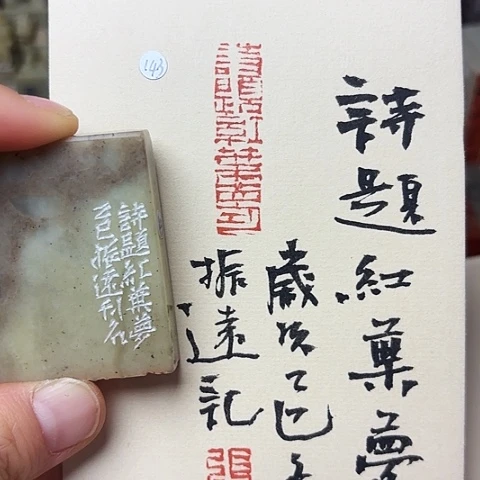 詩題紅葉夢
歲次乙巳
振遠記
詩題紅葉夢
張
143
詩題紅葉夢
乙巳振遠刊